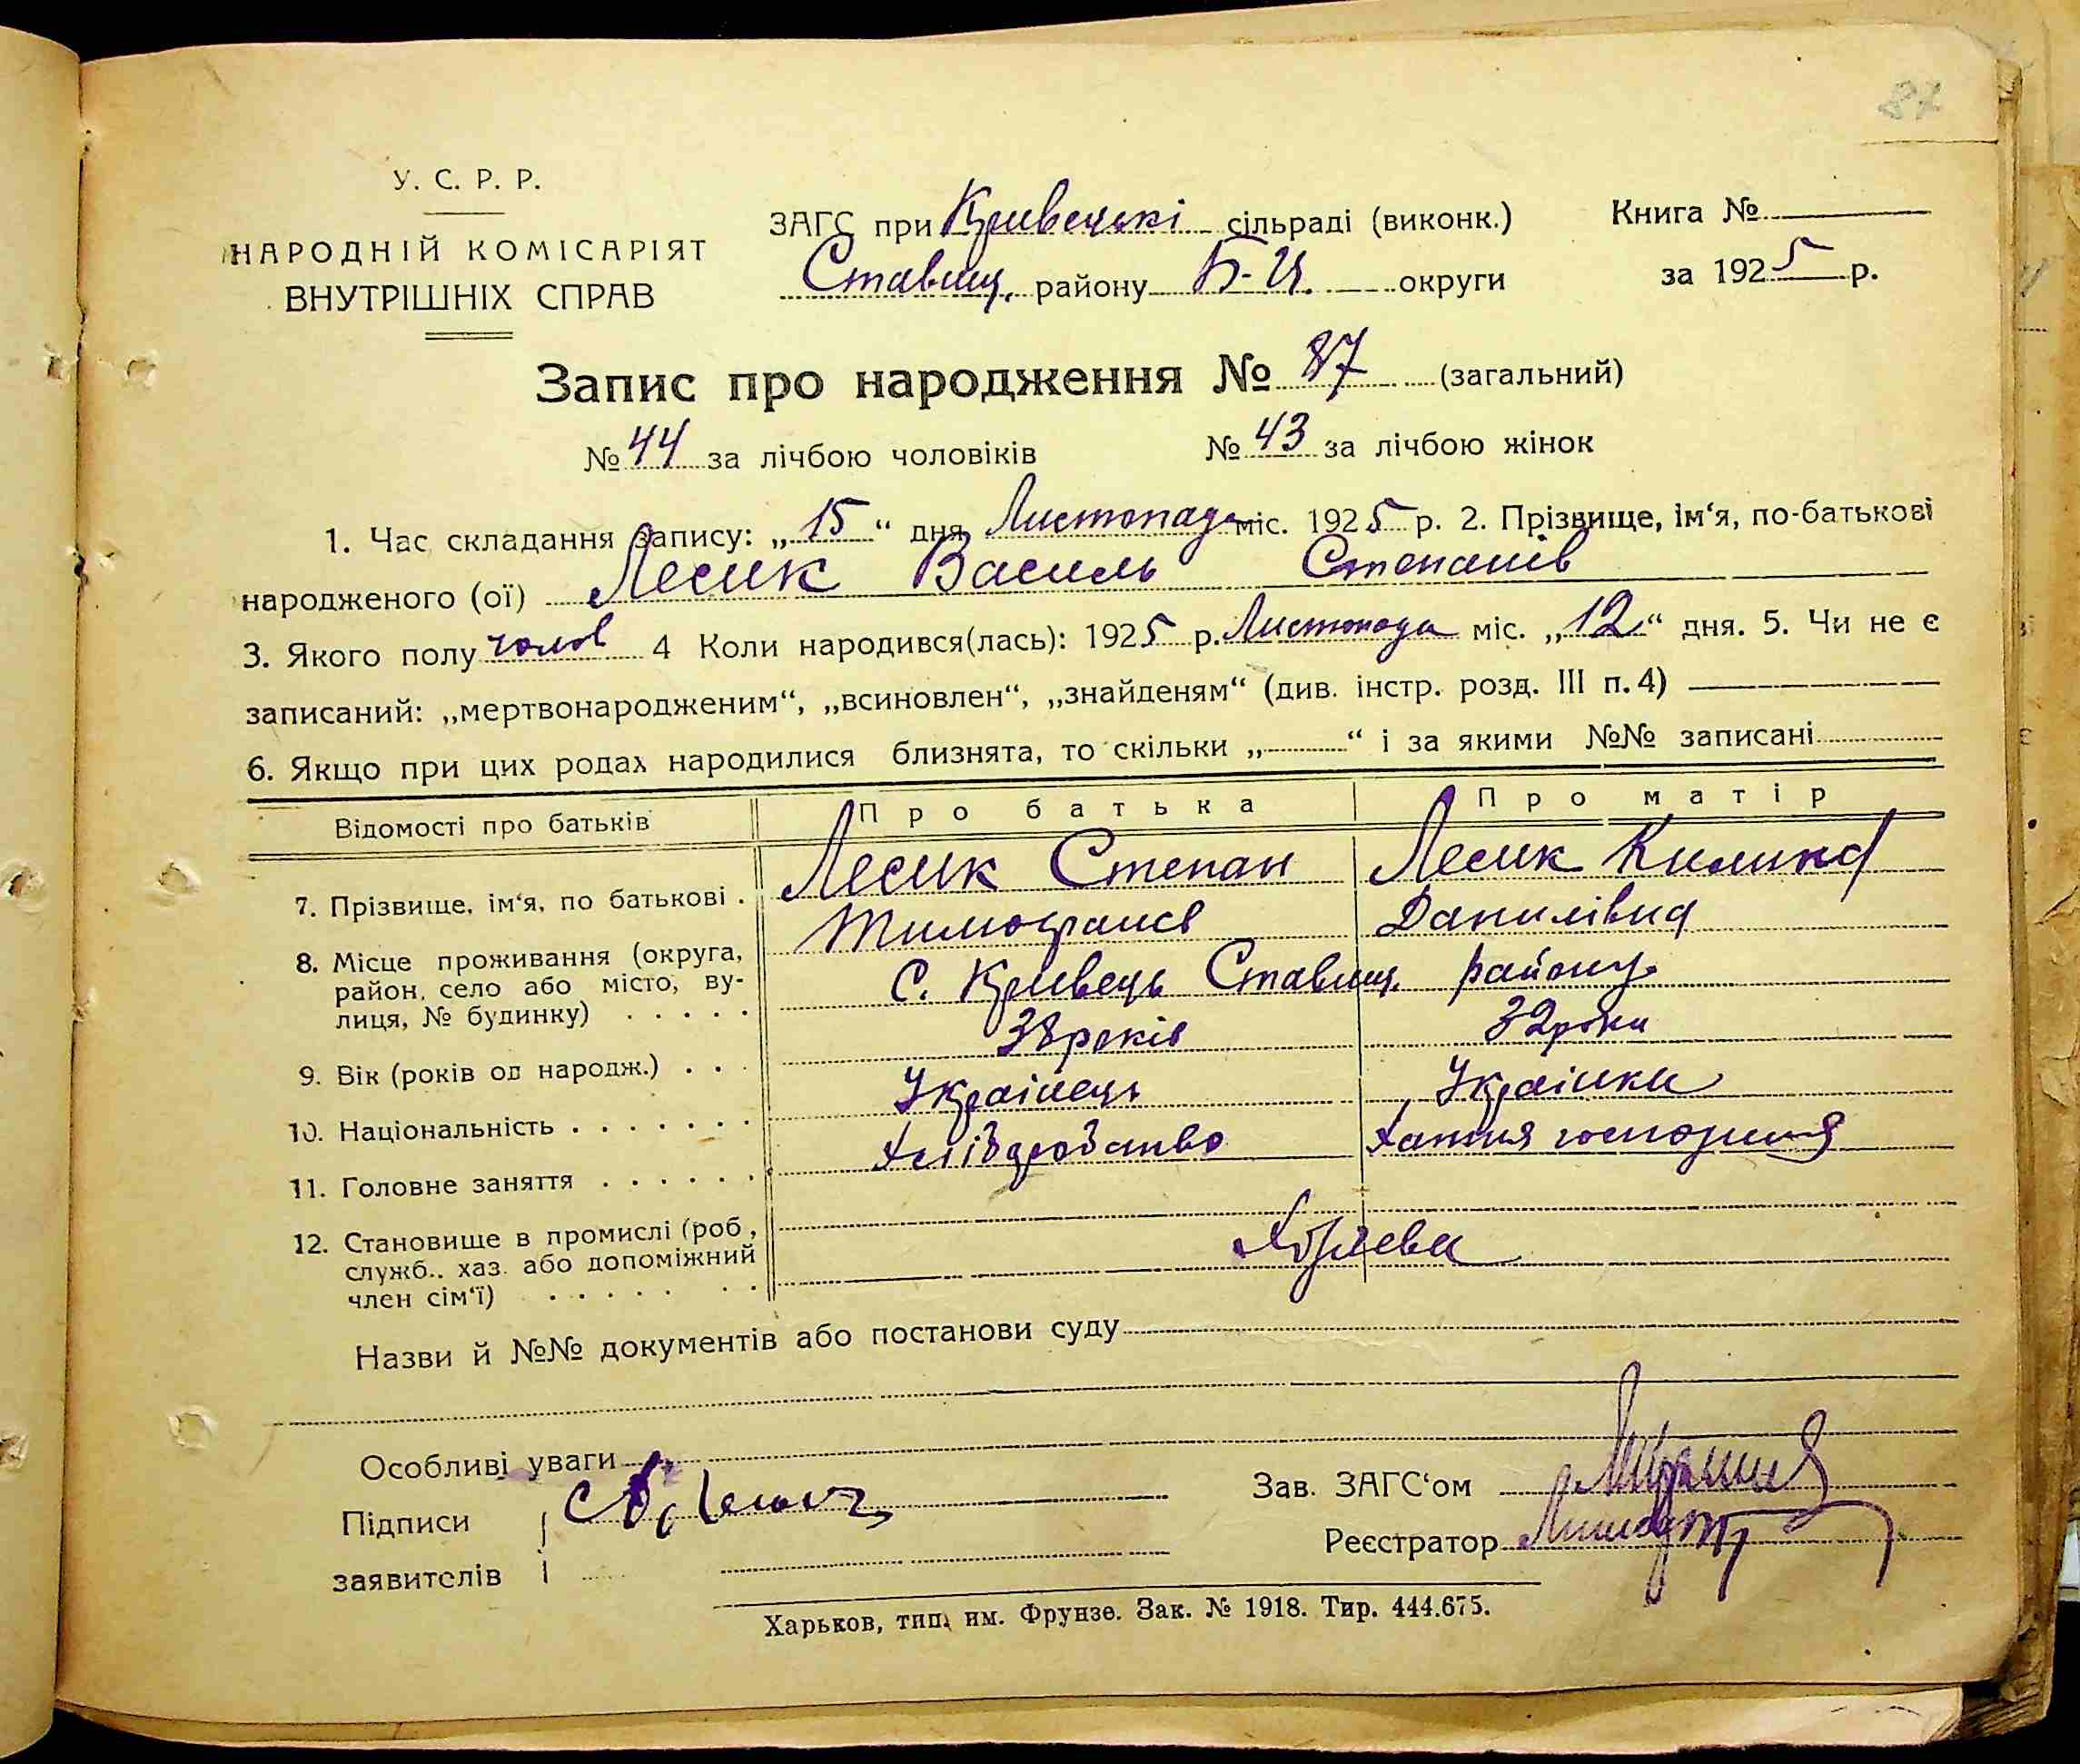 87
У. С. Р. Р.
НАРОДНІЙ КОМІСАРІЯТ
ВНУТРІШНІХ СПРАВ
ЗАГС при Кривецькі сільраді (виконк.)
Ставищ. району Б-Ц. округи
Книга №
за 1925 р.
Запис про народження № 87 (загальний)
№ 44 за лічбою чоловіків № 43 за лічбою жінок
1. Час складання запису: „15“ дня Листопада міс. 1925 р. 2. Прізвище, ім‘я, по-батькові
народженого (ої) Лесик Василь Степанів
3. Якого полу чолов 4 Коли народився(лась): 1925 р. Листопада міс. „12“ дня. 5. Чи не є
записаний: „мертвонародженим“, „всиновлен“, „знайденям“ (див. інстр. розд. III п. 4)
6. Якщо при цих родах народилися близнята, то скільки „ “ і за якими №№ записані
Відомості про батьків Про батька Про матір
7. Прізвище, ім‘я, по батькові . Лесик Степан Лесик Килина
Тимофаїєв Данилівна
8. Місце проживання (округа,
район, село або місто, ву-
лиця, № будинку) . . . . .
С. Кривець Ставищ. району
9. Вік (років од народж.) . . . 38 років 32 роки
10. Національність . . . . . . . Українець Українка
11. Головне заняття . . . . . . Хліборобство Хатня господиня
12. Становище в промислі (роб,
служб.. хаз. або допоміжний
член сім‘ї) . . . . . . .
Хозяева
Назви й №№ документів або постанови суду
Особливі уваги
Підписи
заявителів
Зав. ЗАГС‘ом
Реєстратор
Харьков, тип. им. Фрунзе. Зак. № 1918. Тир. 444.675.